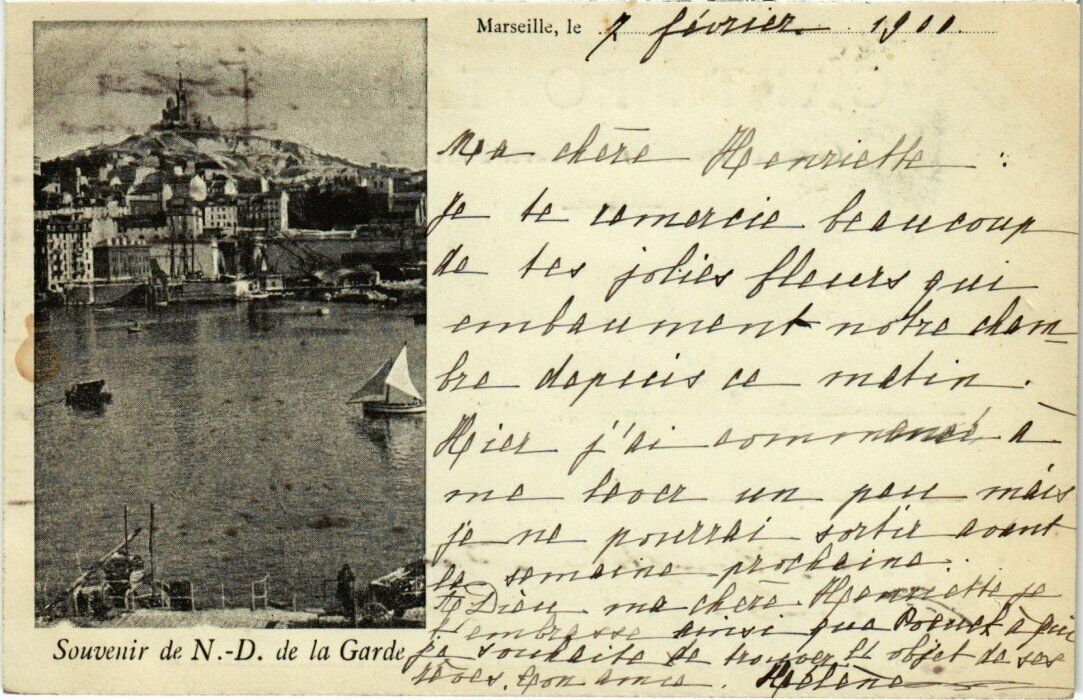 Marseille, le 7 février 1900.
Ma chère Henriette :
Je te remercie beaucoup
de tes jolies fleurs qui
embaument notre cham-
bre depuis ce matin.
Hier j'ai commencé à
me lever un peu mais
je ne pourrai sortir avant
la semaine prochaine.
A Dieu ma chère Henriette je
t'embrasse ainsi que à qui
je souhaite de trouver l'objet de ses
rêves. Ton amie. Hélène
Souvenir de N.-D. de la Garde